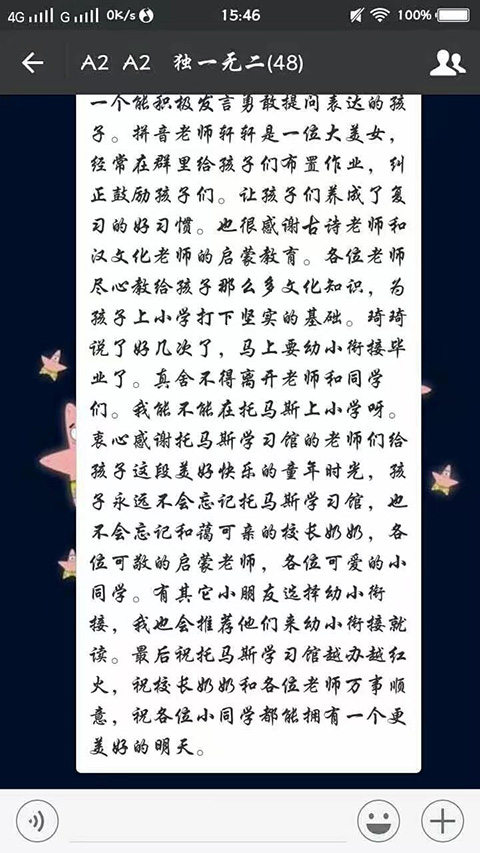 4G G 0K/s 15:46 100%
A2 A2 独一无二(48)
一个能积极发言勇敢提问表达的孩
子。拼音老师轩轩是一位大美女，
经常在群里给孩子们布置作业，纠
正鼓励孩子们。让孩子们养成了复
习的好习惯。也很感谢古诗老师和
汉文化老师的启蒙教育。各位老师
尽心教给孩子那么多文化知识，为
孩子上小学打下坚实的基础。琦琦
说了好几次了，马上要幼小衔接毕
业了。真舍不得离开老师和同学
们。我能不能在托马斯上小学呀。
衷心感谢托马斯学习馆的老师们给
孩子这段美好快乐的童年时光，孩
子永远不会忘记托马斯学习馆，也
不会忘记和蔼可亲的校长奶奶，各
位可敬的启蒙老师，各位可爱的小
同学。有其它小朋友选择幼小衔
接，我也会推荐他们来幼小衔接就
读。最后祝托马斯学习馆越办越红
火，祝校长奶奶和各位老师万事顺
意，祝各位小同学都能拥有一个更
美好的明天。